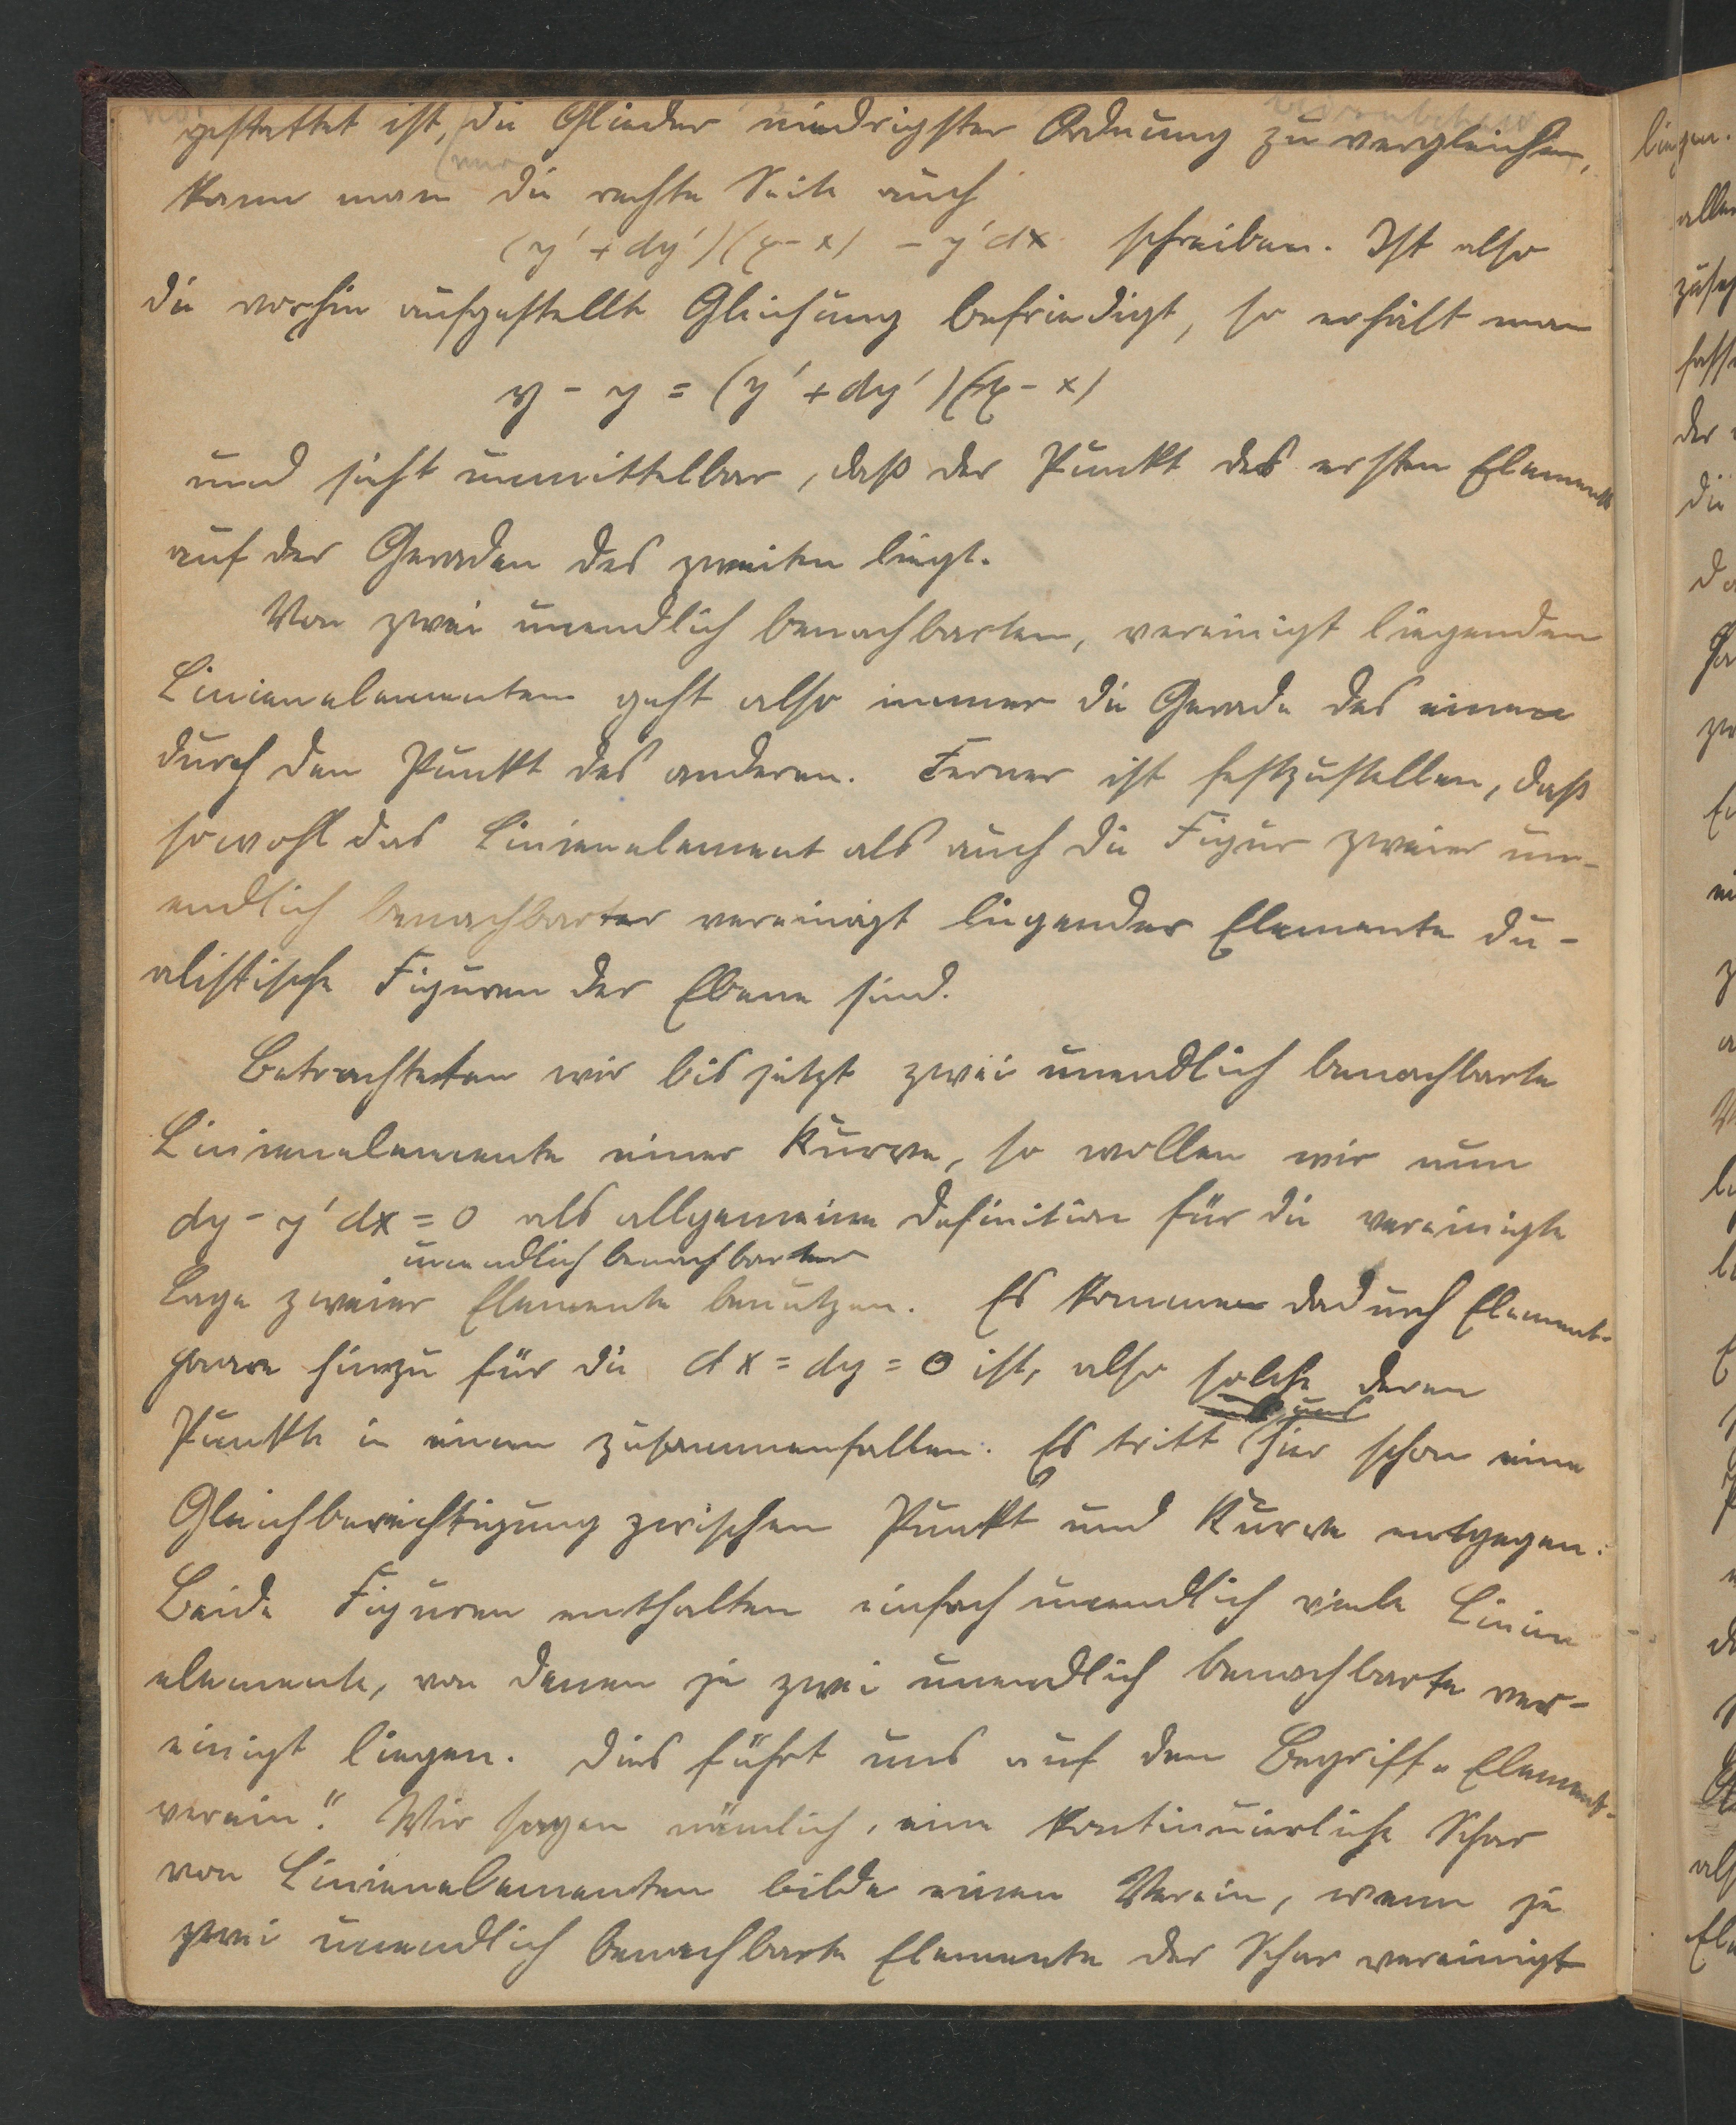 gestattet ist, die Glieder niedrigster Ordnung zu vergleichen,
(nur
kann man die rechte Seite auch
(y' + dy')(x - x) - y'dx schreiben. Ist also
die vorhin aufgestellte Gleichung befriedigt, so erhält man
y - y = (y' + dy')(x - x)
und sieht unmittelbar, daß der Punkt des ersten Elements
auf der Geraden des zweiten liegt.
Von zwei unendlich benachbarten, vereinigt liegenden
Linienelementen geht also immer die Gerade des einen
durch den Punkt des anderen. Ferner ist festzustellen, daß
sowohl das Linienelement als auch die Figur zweier un-
endlich benachbarter vereinigt liegender Elemente du-
alistische Figuren der Ebene sind.
Betrachteten wir bis jetzt zwei unendlich benachbarte
Linienelemente einer Kurve, so wollen wir nun
dy - y'dx = 0 als allgemeine Definition für die vereinigte
unendlich benachbarter
Lage zweier Elemente benutzen. Es kommen dadurch Element-
paare hinzu für die dx = dy = 0 ist, also solche deren
Punkte in einen zusammenfallen. Es tritt hier schon eine
uns
Gleichberechtigung zwischen Punkt und Kurve entgegen.
Beide Figuren enthalten einfach unendlich viele Linien
elemente, von denen je zwei unendlich benachbarte ver-
einigt liegen. Dies führt uns auf den Begriff „Element-
verein“. Wir sagen nämlich, eine kontinuierliche Schar
von Linienelementen bilde einen Verein, wenn je
zwei unendlich benachbarte Elemente der Schar vereinigt
liegen.